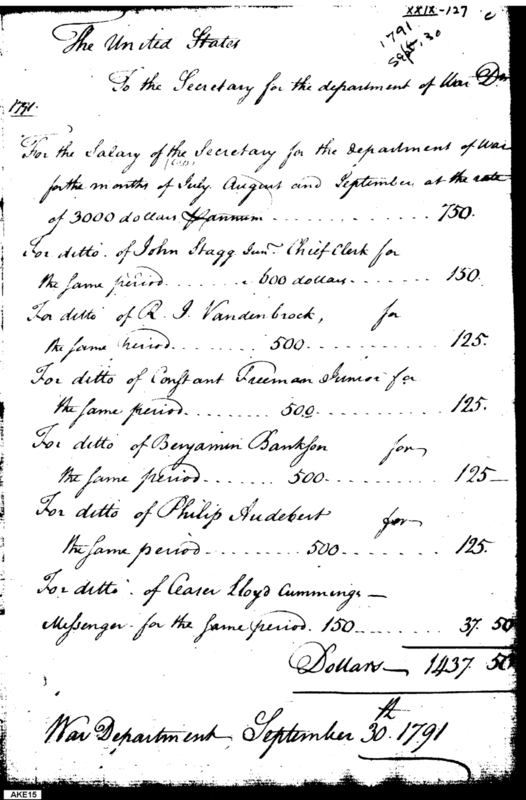 XXIX-127 c
1791
Sept. 30
The United States
To the Secretary for the department of War Dr
1791.
For the Salary of the Secretary for the department of War
for the months of July August and September at the rate
of 3000 dollars ⅌ annum ............ 750.
For ditto of John Stagg Junr. Chief Clerk for
the same period ....... 600 dollars ........ 150.
For ditto of R. J. Vandenbrock, for
the same period ........ 500 ............ 125.
For ditto of Constant Freeman Junior for
the same period ........ 500 ............ 125.
For ditto of Benjamin Bankson for
the same period ........ 500 ............ 125
For ditto of Philip Audebert for
the same period ........ 500 ............ 125.
For ditto of Ceaser Lloyd Cummings
Messenger for the same period. 150 ........ 37. 50
Dollars 1437. 50
War Department September 30th. 1791
AKE15